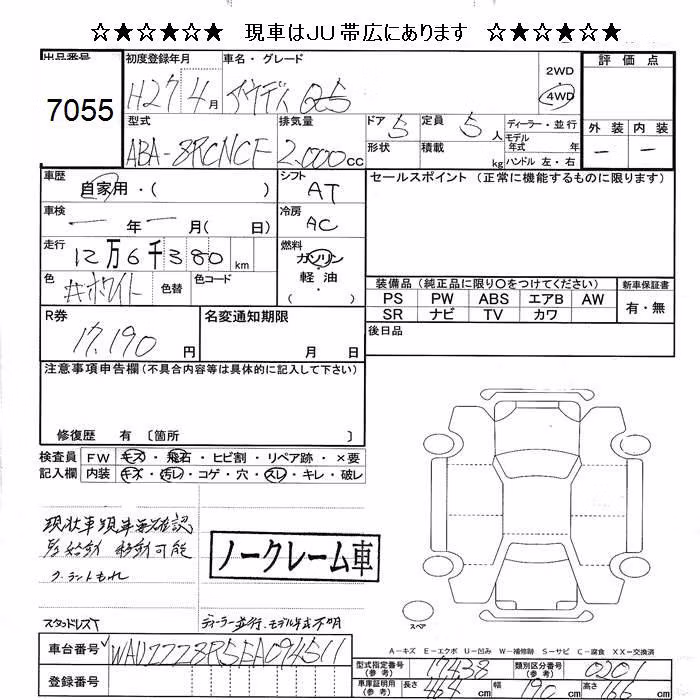 ☆★☆★☆★ 現車はJU帯広にあります ☆★☆★☆★
出品番号
7055
初度登録年月
H27年 4月
車名・グレード
アウディ Q5
2WD
4WD
評価点
外装 内装
－ －
型式
ABA-8RCNCF
排気量
2,000cc
ドア 5
形状
定員 5人
積載 kg
ディーラー・並行
モデル年式 年
ハンドル 左・右
車歴
自家用・( )
シフト
AT
セールスポイント (正常に機能するものに限ります)
車検
－年－月( 日)
冷房
AC
走行
12万6千380km
燃料
ガソリン
軽油
( ・ )
色
ホワイト
色替
色コード
装備品 (純正品に限り〇をつけてください)
PS PW ABS エアB AW
SR ナビ TV カワ
新車保証書
有・無
R券
17,190円
名変通知期限
月 日
後日品
注意事項申告欄 (不具合内容等は具体的に記入して下さい)
修復歴 有 〔箇所 〕
検査員記入欄
FW キズ・飛石・ヒビ割・リペア跡・×要
内装 キズ・汚レ・コゲ・穴・スレ・キレ・破レ
現状車現車要確認
始動 移動可能
クーラントもれ
ノークレーム車
スタッドレス
ディーラー並行、モデル年式不明
スペア
A－キズ E－エクボ U－凹み W－補修跡 S－サビ C－腐食 XX－交換済
車台番号
WAUZZZ8R5FA094511
登録番号
型式指定番号(参考) 17438
類別区分番号(参考) 0201
車庫証明用(参考) 長さ 464cm 幅 190cm 高さ 166cm